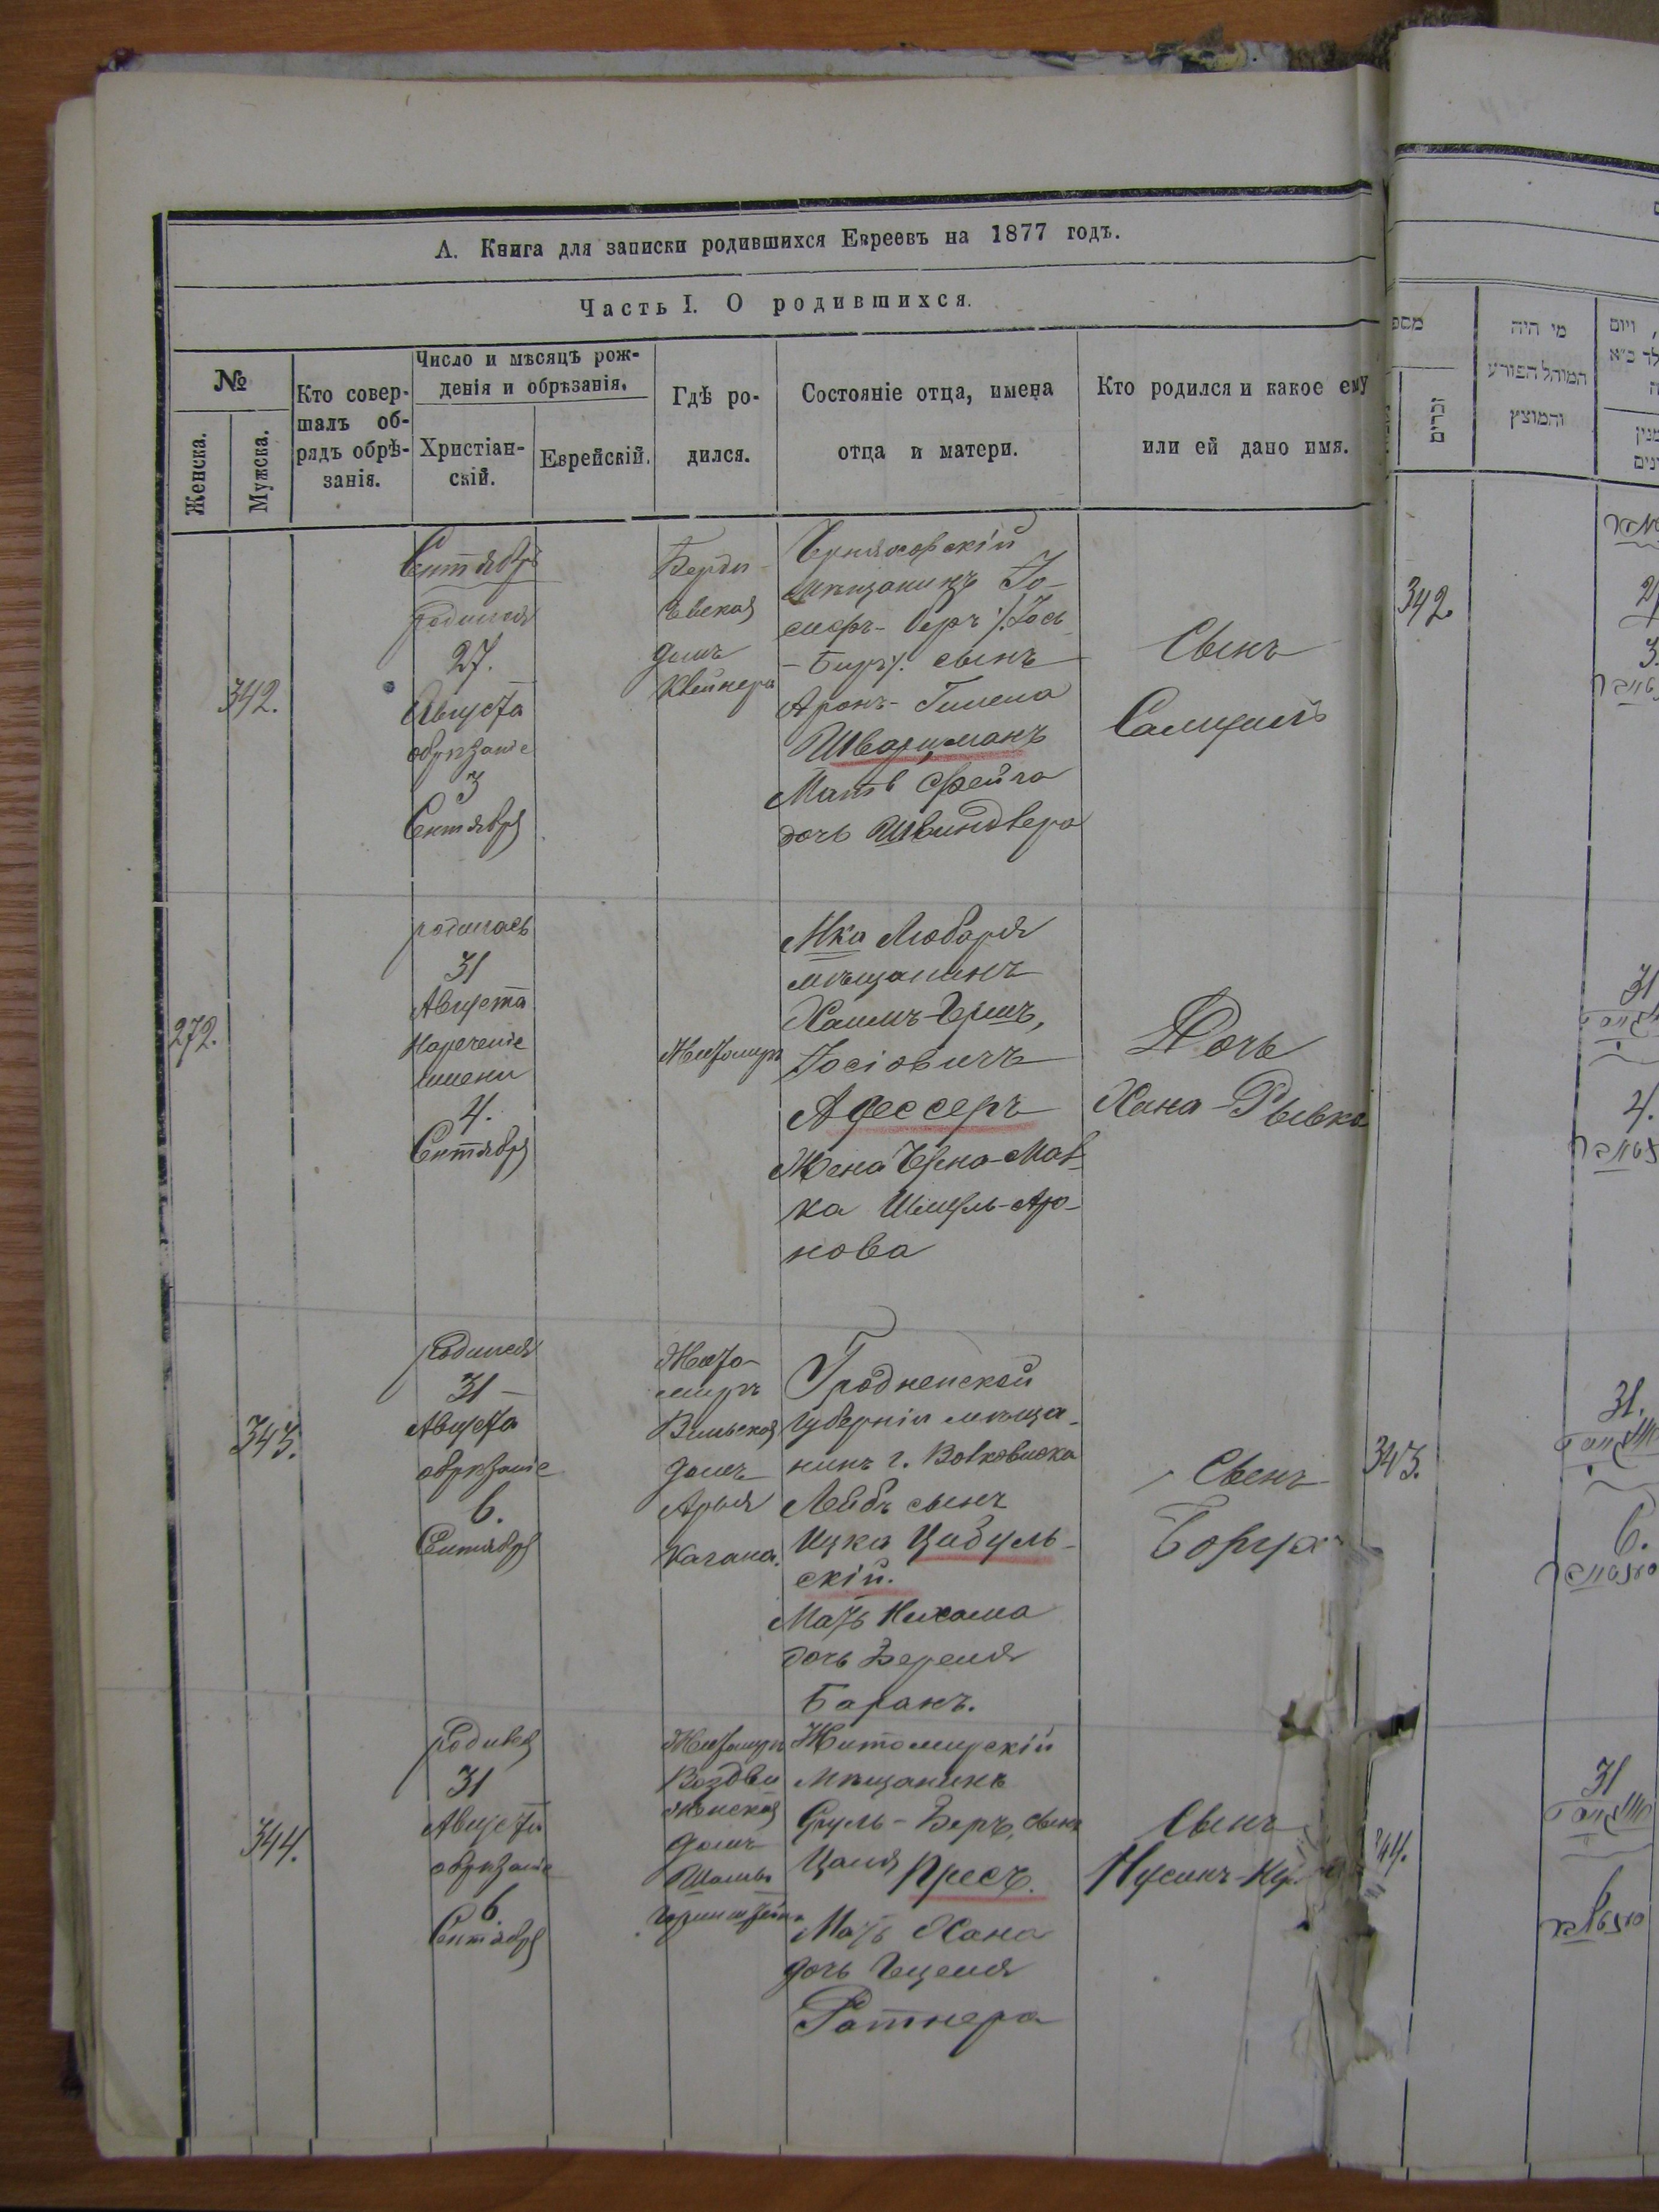 А. Книга для записки родившихся Евреевъ на 1877 годъ.
Часть I. О родившихся.
№
Женска.
Мужска.
Кто совер-
шалъ об-
рядъ обрѣ-
занія.
Число и мѣсяцъ рож-
денія и обрѣзанія.
Христіан-
скій.
Еврейскій.
Гдѣ ро-
дился.
Состояніе отца, имена
отца и матери.
Кто родился и какое ему
или ей дано имя.
342.
Сентябрь
родился
27.
Августа
обрѣзаніе
3
Сентября
Берди-
чевская
домъ
Квейнера
Черняховскій
мѣщанинъ Іо-
сифъ-Беръ /Іось
-Беръ/. сынъ
Аронъ-
Шварцманъ
Мать Фейга
дочь
Сынъ
Самуилъ
272.
родилась
31
Августа
Нареченіе
имени
4.
Сентября
Житомиръ
М-ка Любаря
мѣщанинъ
Хаимъ-Гершъ,
Іосіовичъ
Адессеръ
Жена Черна-Мал-
ка Шмуль-Аро-
нова
Дочь
Хана-Рывка
343.
родился
31
Августа
обрѣзаніе
6.
Сентября
Жито-
миръ
Вильская
домъ
Арыя
Кагана.
Гродненской
губерніи мѣща-
нинъ г. Волковиска
Лейбъ сынъ
Ицка Цибуль-
скій.
Мать Нихама
дочь Береля
Баранъ.
Сынъ
Борух
344.
родился
31
Августа
обрѣзаніе
6.
Сентября
Житомиръ
Воздви
женская
домъ
Житомирскій
Мѣщанинъ
Сруль-Беръ, сынъ
Пресъ.
Мать Хана
дочь Гецеля
Ратнера
Сынъ
Нусинъ-
מי היה
המוהל הפורע
והמוצץ
זכרים
342
343.
31
4.
31.
6.
31